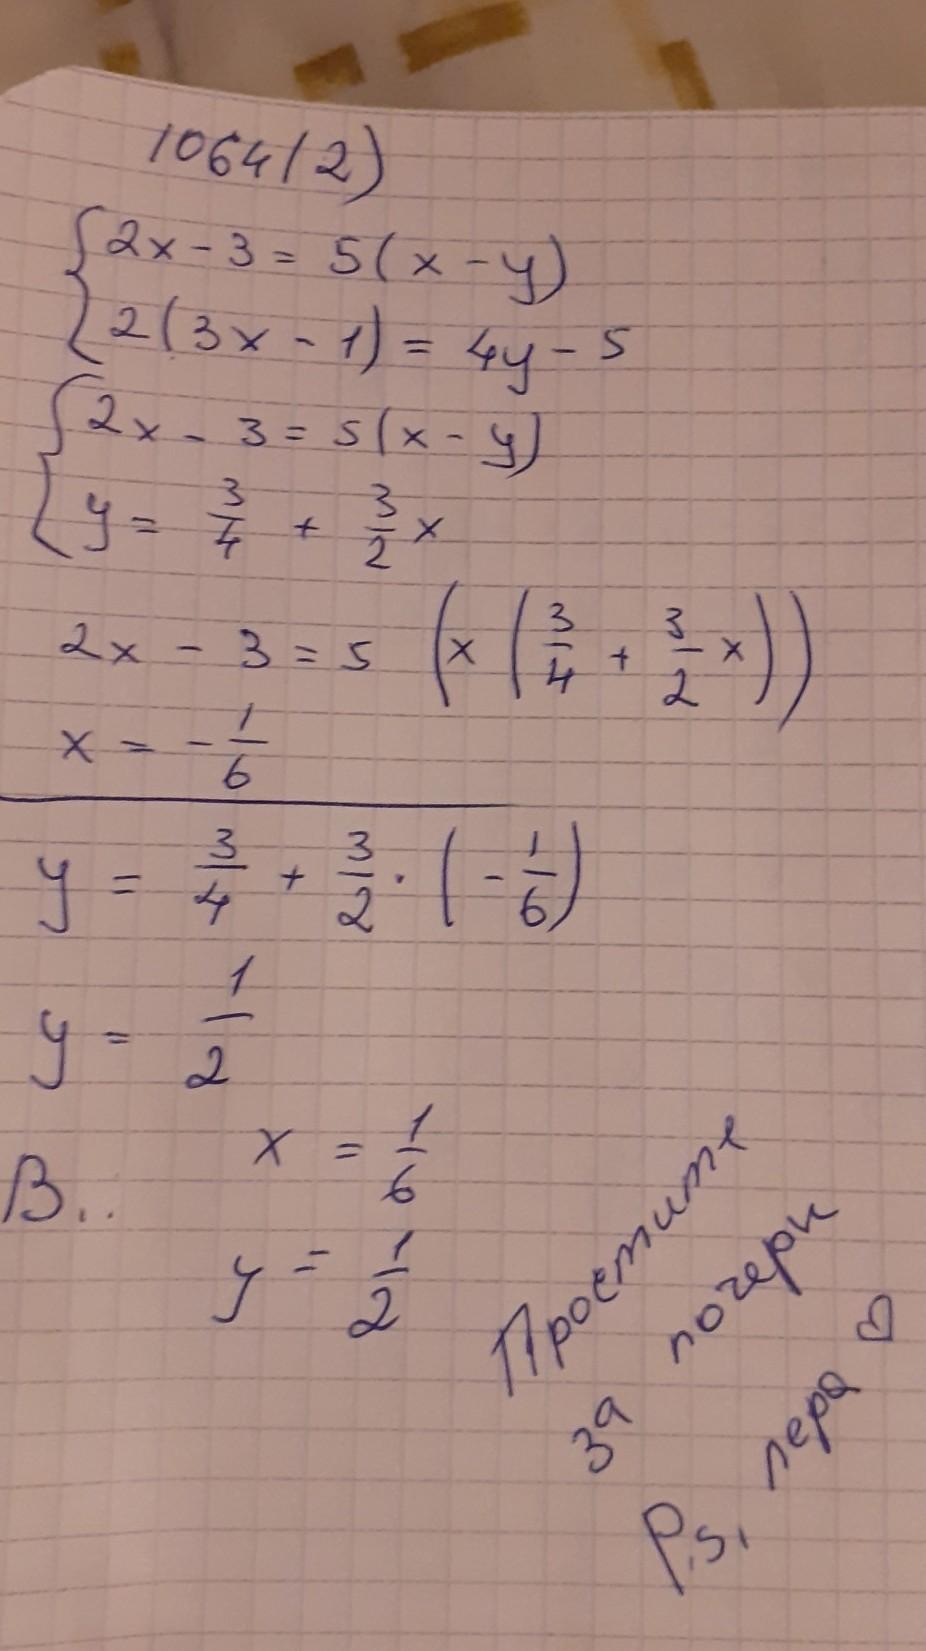 1064(2)
{2x - 3 = 5(x - y)
{2(3x - 1) = 4y - 5
{2x - 3 = 5(x - y)
{y = 3/4 + 3/2 x
2x - 3 = 5 (x (3/4 + 3/2 x))
x = - 1/6
y = 3/4 + 3/2 · (- 1/6)
y = 1/2
В.. x = 1/6
y = 1/2
Простите
за почерк
P.s. лера ♡